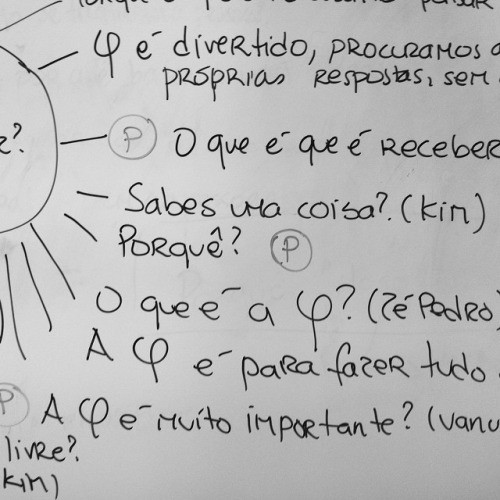 φ é divertido, procuramos a
próprias respostas, sem
r?
P O que é que é receber
Sabes uma coisa? (Kim)
Porquê? P
O que é a φ? (Zé Pedro)
A φ é para fazer tudo
P A φ é muito importante? (Vanu
livre?
Kim)